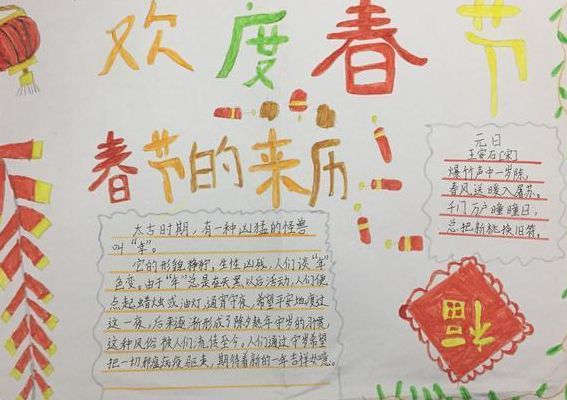 欢度春节
春节的来历
太古时期，有一种凶猛的怪兽
叫“年”。
它的形貌狰狞，生性凶残，人们谈“年”
色变，由于“年”总是在天黑以后活动，人们便
点起蜡烛或油灯，通宵守夜，希望平安地度过
这一夜，后来逐渐形成了除夕熬年守岁的习惯，
这种风俗被人们流传至今。人们通过守岁希望
把一切邪瘟病疫驱走，期待着新的一年吉祥如意。
元日
王安石[宋]
爆竹声中一岁除，
春风送暖入屠苏。
千门万户曈曈日，
总把新桃换旧符。
福